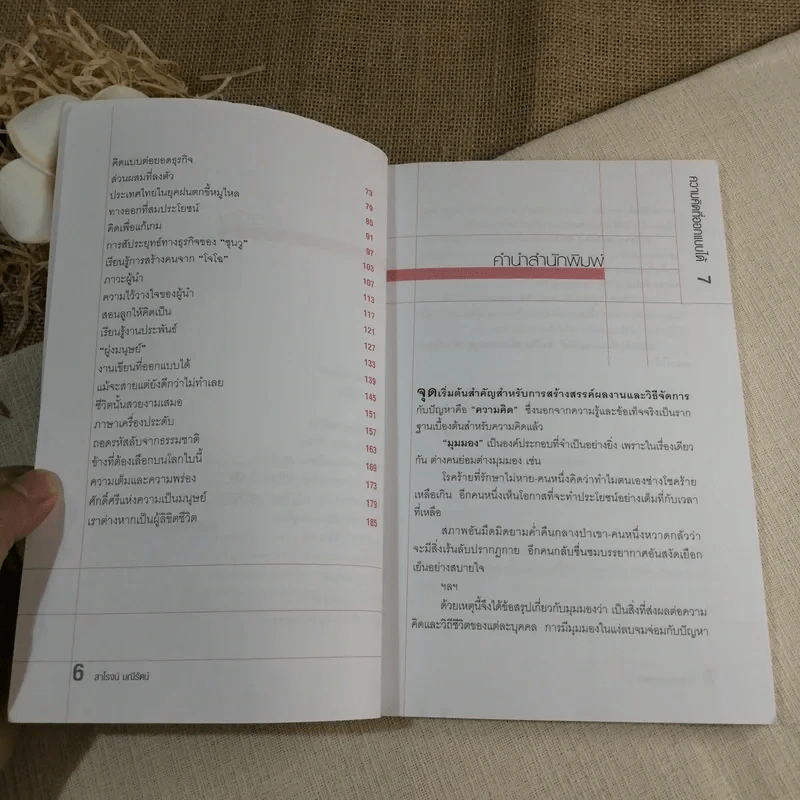 คิดแบบต่อยอดธุรกิจ 73
ส่วนผสมที่ลงตัว 79
ประเทศไทยในยุคฝนตกขี้หมูไหล 85
ทางออกที่สมประโยชน์ 91
คิดเพื่อแก้เกม 97
การสัประยุทธ์ทางธุรกิจของ "ซุนวู" 103
เรียนรู้การสร้างคนจาก "โจโฉ" 107
ภาวะผู้นำ 113
ความไว้วางใจของผู้นำ 117
สอนลูกให้คิดเป็น 121
เรียนรู้งานประพันธ์ 127
"ฝูงมนุษย์" 133
งานเขียนที่ออกแบบได้ 139
แม้จะสายแต่ยังดีกว่าไม่ทำเลย 145
ชีวิตนั้นสวยงามเสมอ 151
ภาษาเครื่องประดับ 157
ถอดรหัสลับจากธรรมชาติ 163
ข้างที่ต้องเลือกบนโลกใบนี้ 169
ความเต็มและความพร่อง 173
ศักดิ์ศรีแห่งความเป็นมนุษย์ 179
เราต่างหากเป็นผู้ลิขิตชีวิต 185
6 สาโรจน์ มณีรัตน์
ความคิดที่ออกแบบได้ 7
คำนำสำนักพิมพ์
จุดเริ่มต้นสำคัญสำหรับการสร้างสรรค์ผลงานและวิธีจัดการ
กับปัญหาคือ "ความคิด" ซึ่งนอกจากความรู้และข้อเท็จจริงเป็นราก
ฐานเบื้องต้นสำหรับความคิดแล้ว
"มุมมอง" เป็นองค์ประกอบที่จำเป็นอย่างยิ่ง เพราะในเรื่องเดียว
กัน ต่างคนย่อมต่างมุมมอง เช่น
โรคร้ายที่รักษาไม่หาย-คนหนึ่งคิดว่าทำไมตนเองช่างโชคร้าย
เหลือเกิน อีกคนหนึ่งเห็นโอกาสที่จะทำประโยชน์อย่างเต็มที่กับเวลา
ที่เหลือ
สภาพอันมืดมิดยามค่ำคืนกลางป่าเขา-คนหนึ่งหวาดกลัวว่า
จะมีสิ่งเร้นลับปรากฏกาย อีกคนกลับชื่นชมบรรยากาศอันสงัดเยือก
เย็นอย่างสบายใจ
ฯลฯ
ด้วยเหตุนี้จึงได้ข้อสรุปเกี่ยวกับมุมมองว่า เป็นสิ่งที่ส่งผลต่อความ
คิดและวิถีชีวิตของแต่ละบุคคล การมีมุมมองในแง่ลบจมจ่อมกับปัญหา